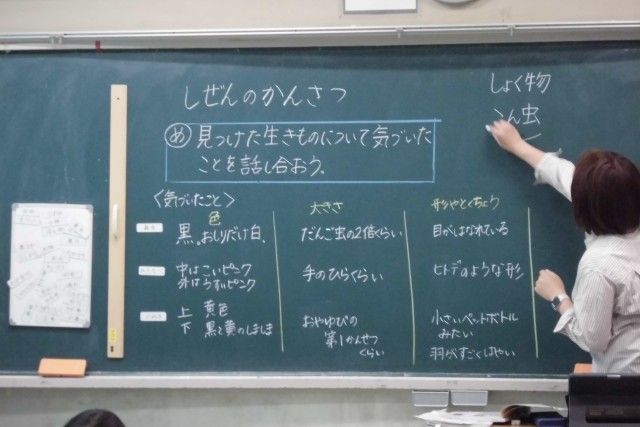 しぜんのかんさつ
しょく物
こん虫
め 見つけた生きものについて気づいた
ことを話し合おう。
〈気づいたこと〉
色
大きさ
形やとくちょう
黒。おしりだけ白。
だんご虫の2倍くらい
目がはなれている
中はこいピンク
外はうすいピンク
手のひらくらい
ヒトデのような形
上 黄色
下 黒と黄のしましま
おやゆびの
第1かんせつ
くらい
小さいペットボトル
みたい
羽がすごくはやい